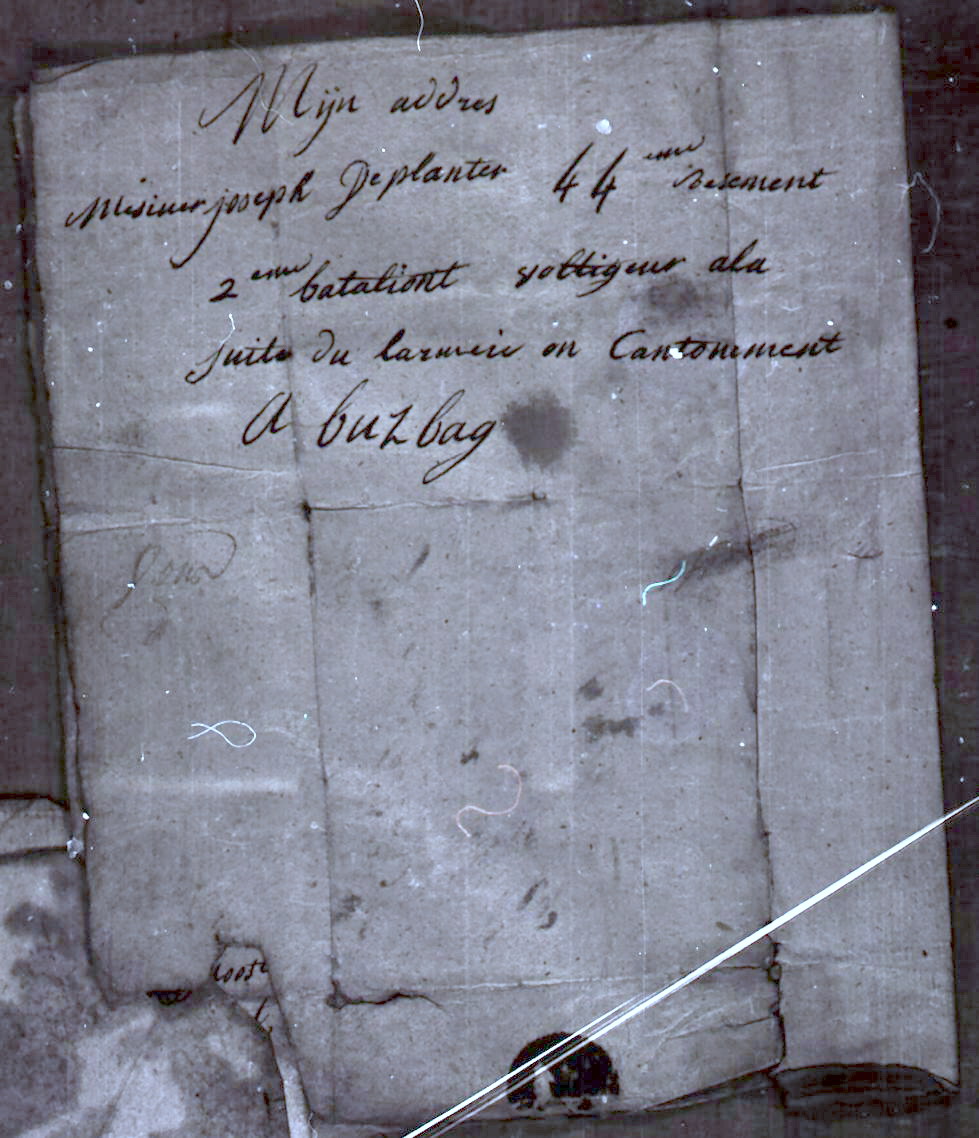 Mijn addres
Misiuer joseph Deplanter 44 eme resement
2 eme bataliont voltigeur ala
suite du larmeie en Cantonnement
A buzbag